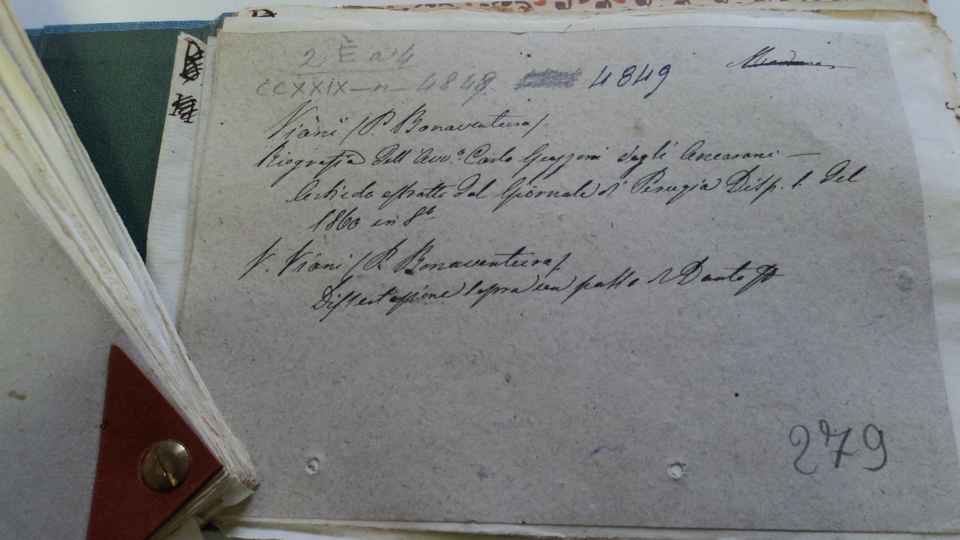 2 È n 4
CCXXIX - n - 4848 4849
Viani (P. Bonaventura).
Biografia dell' Avv.º Carlo degli Ancarani —
estratto dal Giornale di Perugia Disp. 1. del
1860 in 8º
V. Viani (P. Bonaventura)
Dissertazione sopra un passo di Dante
279